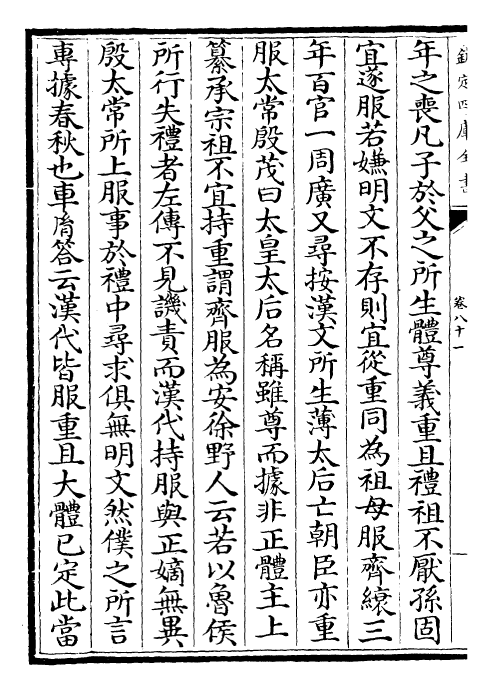 欽定四庫全書
卷八十一
年之喪凡子於父之所生體尊義重且禮祖不厭孫固
宜遂服若嫌明文不存則宜從重同為祖母服齊縗三
年百官一周廣又尋按漢文所生薄太后亡朝臣亦重
服太常殷茂曰太皇太后名稱雖尊而據非正體主上
纂承宗祖不宜持重謂齊服為安徐野人云若以魯侯
所行失禮者左傳不見譏責而漢代持服與正嫡無異
殷太常所上服事於禮中尋求俱無明文然僕之所言
專據春秋也車膺答云漢代皆服重且大體已定此當